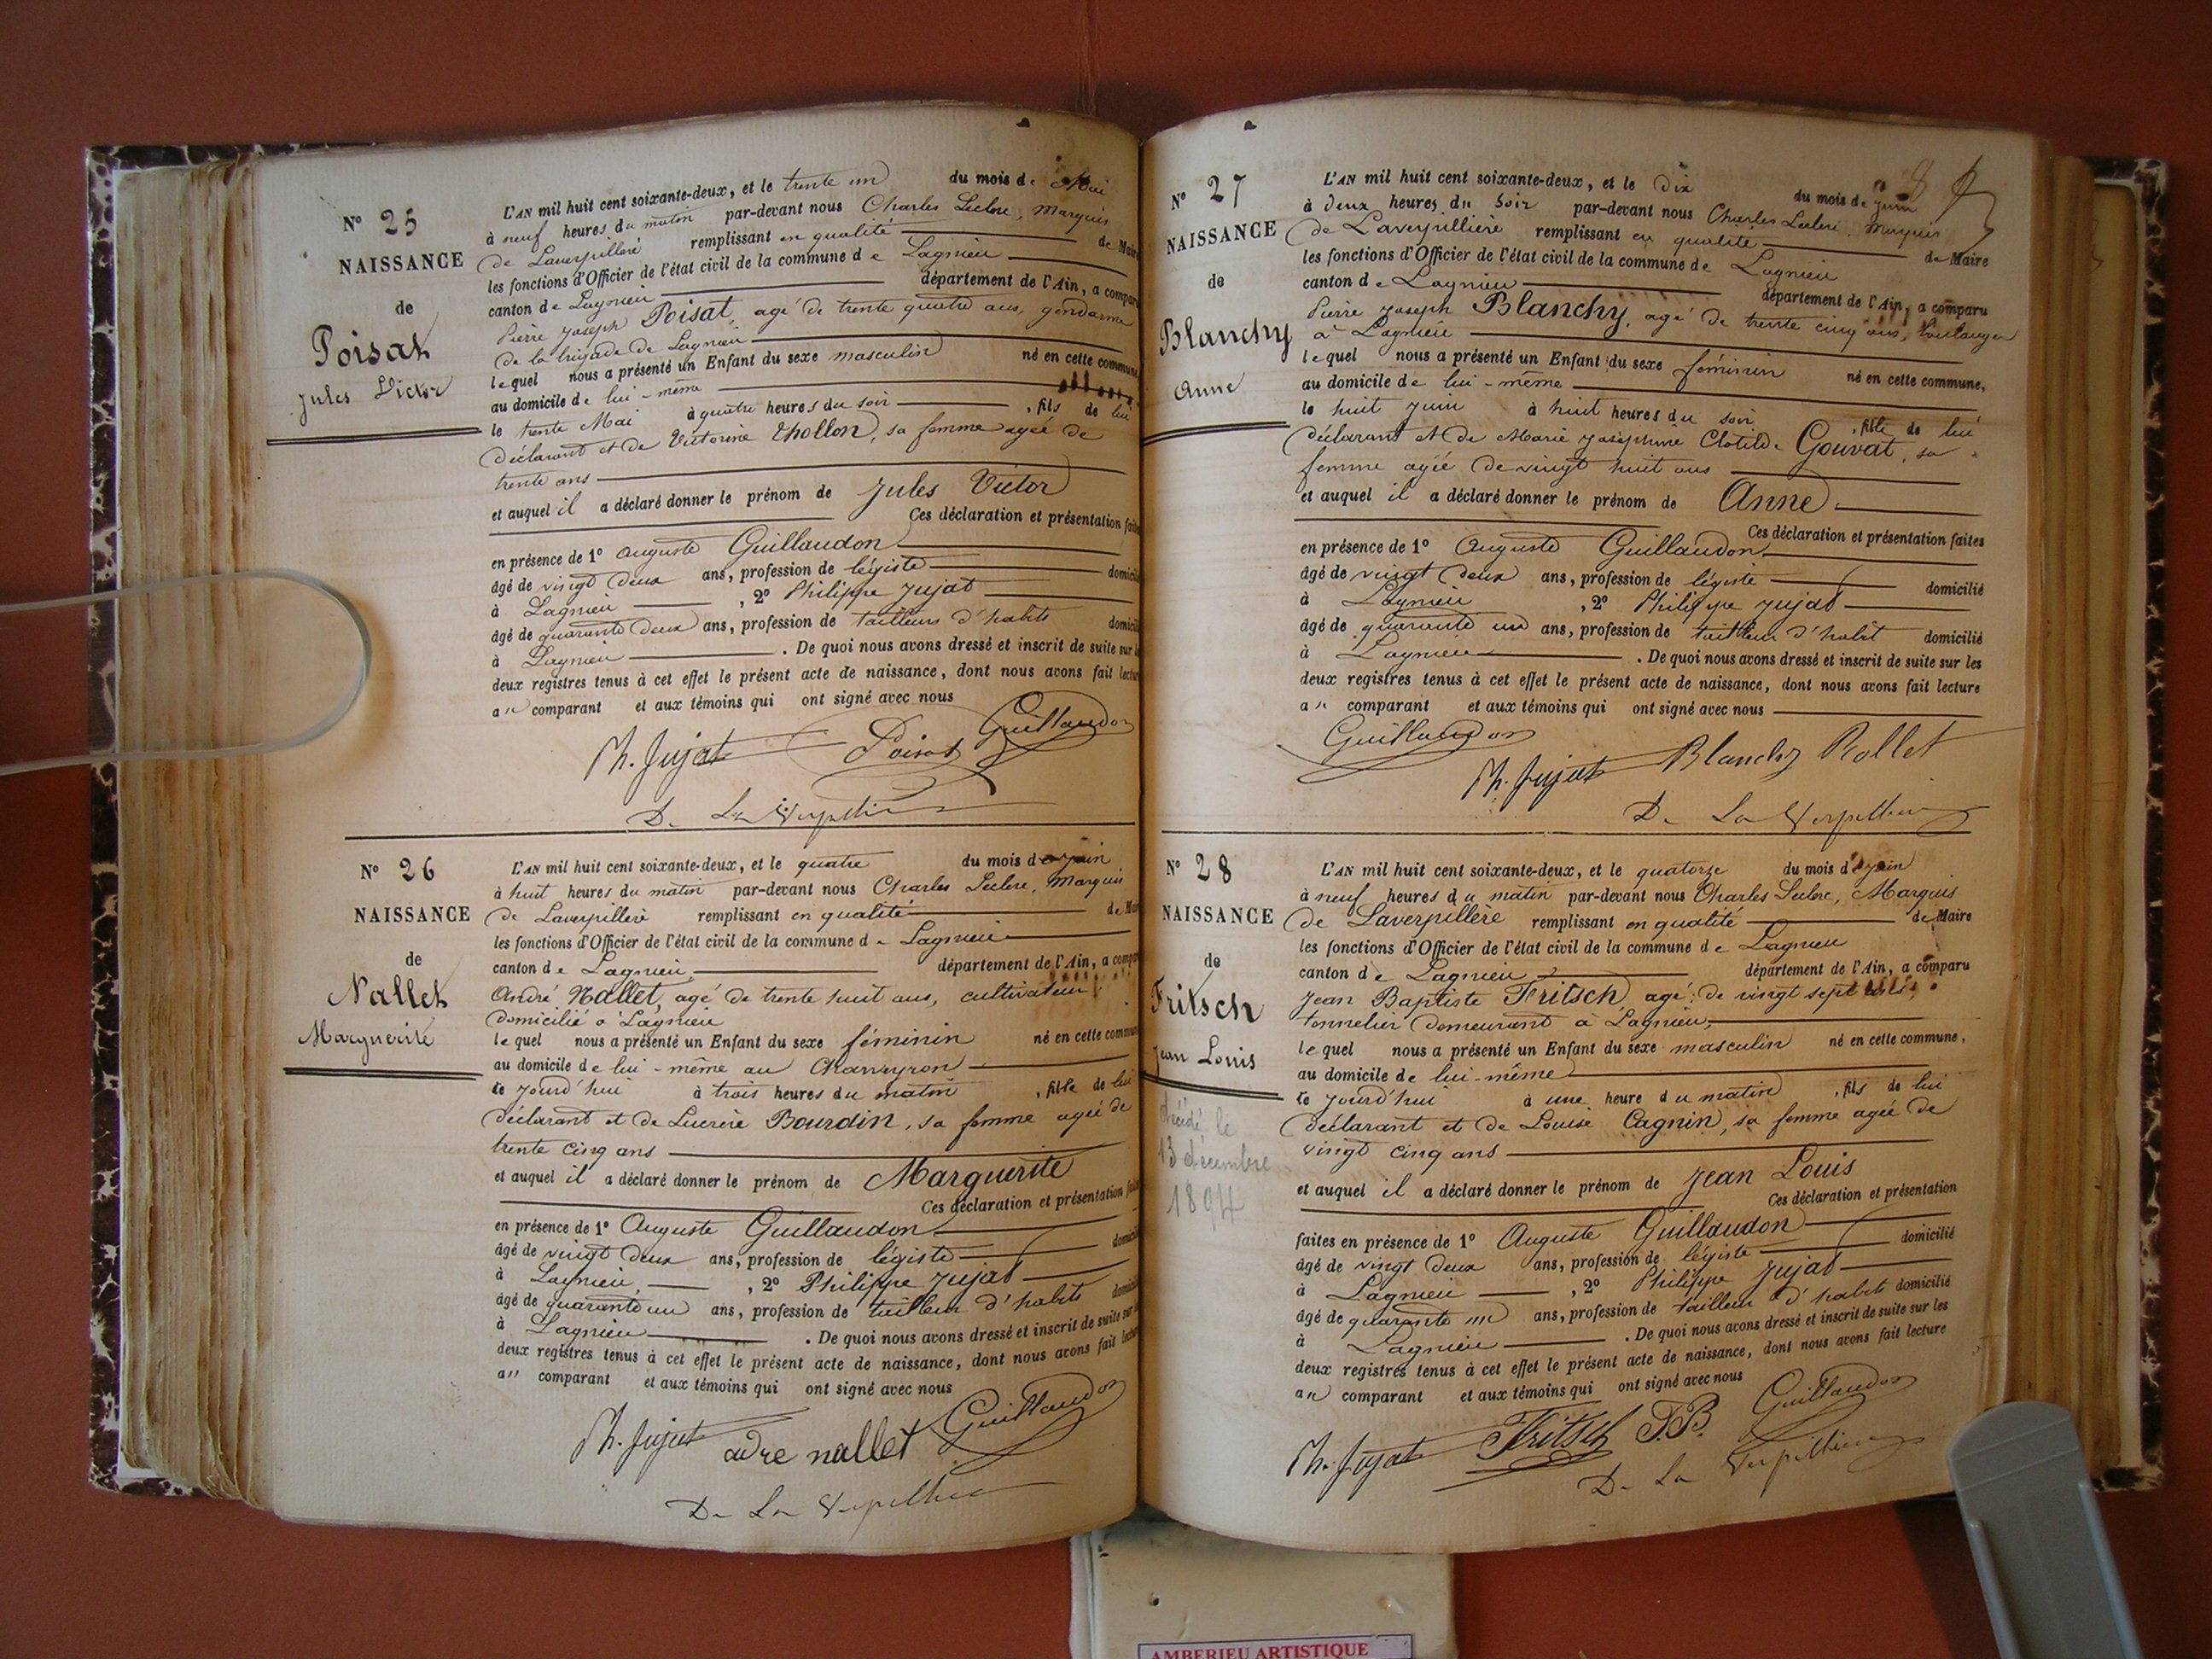 N° 25
NAISSANCE
de
Poisat
Jules Victor
L'AN mil huit cent soixante-deux, et le trente un du mois de Mai
à neuf heures du matin par-devant nous Charles Leclerc, Marquis
de Laverpillere remplissant en qualité de Maire
les fonctions d'Officier de l'état civil de la commune de Lagnieu
canton de Lagnieu département de l'Ain, a compar
Pierre Joseph Poisat, agé de trente quatre ans, gendarme
de la brigade de Lagnieu
lequel nous a présenté un Enfant du sexe masculin né en cette commune
au domicile de lui-même
le trente Mai à quatre heures du soir, fils de lui
déclarant et de Victorine Thollon, sa femme agée de
trente ans
et auquel il a déclaré donner le prénom de Jules Victor
Ces déclaration et présentation faites
en présence de 1° Auguste Guillaudon
âgé de vingt deux ans, profession de légiste domicilié
à Lagnieu, 2° Philippe Jujat
âgé de quarante deux ans, profession de tailleurs d'habits domicilié
à Lagnieu. De quoi nous avons dressé et inscrit de suite sur l
deux registres tenus à cet effet le présent acte de naissance, dont nous avons fait lectur
au comparant et aux témoins qui ont signé avec nous
Guillaudon
Ph. Jujat Poisat
De La Verpilliere
N° 26
NAISSANCE
de
Nallet
Marguerite
L'AN mil huit cent soixante-deux, et le quatre du mois de juin
à huit heures du matin par-devant nous Charles Leclerc, Marquis
de Laverpillere remplissant en qualité de Mai
les fonctions d'Officier de l'état civil de la commune de Lagnieu
canton de Lagnieu département de l'Ain, a compa
André Nallet, agé de trente huit ans, cultivateur
domicilié à Lagnieu
lequel nous a présenté un Enfant du sexe féminin né en cette commun
au domicile de lui-même au Charveyron
le jourd'hui à trois heures du matin, fille de lui
déclarant et de Lucrèce Bourdin, sa femme agée de
trente cinq ans
et auquel il a déclaré donner le prénom de Marguerite
Ces déclaration et présentation fai
en présence de 1° Auguste Guillaudon
âgé de vingt deux ans, profession de légiste domicil
à Lagnieu, 2° Philippe Jujat
âgé de quarante un ans, profession de tailleur d'habits domicil
à Lagnieu. De quoi nous avons dressé et inscrit de suite sur l
deux registres tenus à cet effet le présent acte de naissance, dont nous avons fait lectur
au comparant et aux témoins qui ont signé avec nous
Ph. Jujat adre nallet Guillaudon
De La Verpilliere
N° 27
NAISSANCE
de
Blanchy
Anne
L'AN mil huit cent soixante-deux, et le Dix du mois de juin
à Deux heures du Soir par-devant nous Charles Leclerc, Marquis
de Laverpillière remplissant en qualité de Maire
les fonctions d'Officier de l'état civil de la commune de Lagnieu
canton de Lagnieu département de l'Ain, a comparu
Pierre Joseph Blanchy, agé de trente cinq ans, boulanger
à Lagnieu
lequel nous a présenté un Enfant du sexe féminin né en cette commune,
au domicile de lui-même
le huit juin à huit heures du soir, fille de lui
déclarant et de Marie Joséphine Clotilde Gouvat, sa
femme agée de vingt huit ans
et auquel il a déclaré donner le prénom de Anne
Ces déclaration et présentation faites
en présence de 1° Auguste Guillaudon
âgé de vingt deux ans, profession de légiste domicilié
à Lagnieu, 2° Philippe Jujat
âgé de quarante un ans, profession de tailleur d'habit domicilié
à Lagnieu. De quoi nous avons dressé et inscrit de suite sur les
deux registres tenus à cet effet le présent acte de naissance, dont nous avons fait lecture
au comparant et aux témoins qui ont signé avec nous
Guillaudon
Ph. Jujat Blanchy Rollet
De La Verpilliere
N° 28
NAISSANCE
de
Fritsch
Jean Louis
décédé le
13 décembre
1894
L'AN mil huit cent soixante-deux, et le quatorze du mois de juin
à neuf heures du matin par-devant nous Charles Leclerc, Marquis
de Laverpillère remplissant en qualité de Maire
les fonctions d'Officier de l'état civil de la commune de Lagnieu
canton de Lagnieu département de l'Ain, a comparu
Jean Baptiste Fritsch, agé de vingt sept ans,
tonnelier demeurant à Lagnieu,
lequel nous a présenté un Enfant du sexe masculin né en cette commune,
au domicile de lui-même
le jourd'hui à une heure du matin, fils de lui
déclarant et de Louise Cagnin, sa femme agée de
vingt cinq ans
et auquel il a déclaré donner le prénom de Jean Louis
Ces déclaration et présentation
faites en présence de 1° Auguste Guillaudon
âgé de vingt deux ans, profession de légiste domicilié
à Lagnieu, 2° Philippe Jujat
âgé de quarante un ans, profession de tailleur d'habits domicilié
à Lagnieu. De quoi nous avons dressé et inscrit de suite sur les
deux registres tenus à cet effet le présent acte de naissance, dont nous avons fait lecture
au comparant et aux témoins qui ont signé avec nous
Ph. Jujat Fritsch J.B. Guillaudon
De La Verpilliere
AMBERIEU ARTISTIQUE